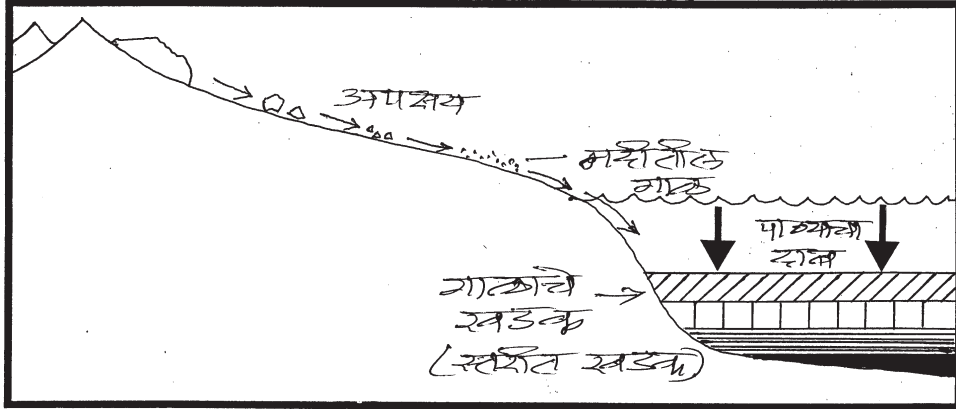 अपक्षय
नदीतील
गाळ
पाण्याचा
दाब
गाळाचे
खडक
(स्तरीत खडक)